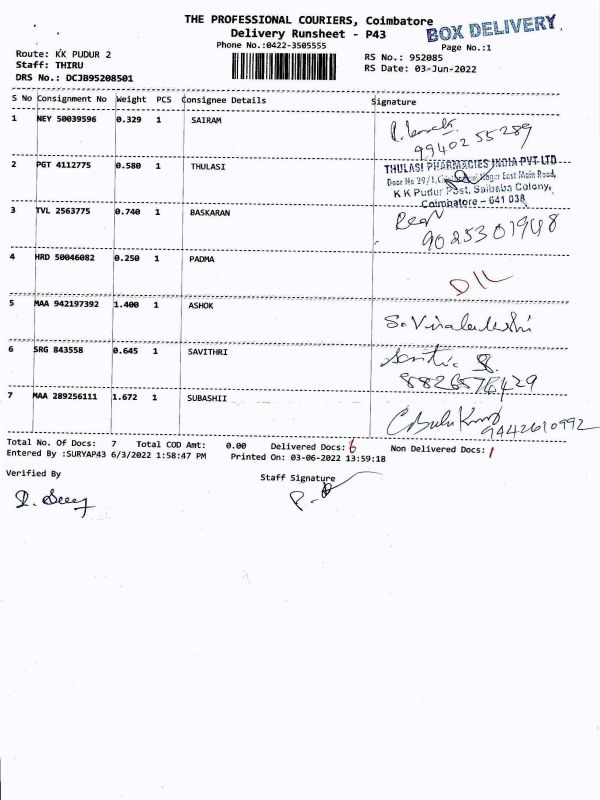 THE PROFESSIONAL COURIERS, Coimbatore
BOX DELIVERY
Delivery Runsheet - P43
Phone No.:0422-3505555
Page No.:1
Route: KK PUDUR 2
RS No.: 952085
Staff: THIRU
RS Date: 03-Jun-2022
DRS No.: DCJB95208501
S No Consignment No Weight PCS Consignee Details Signature
1 NEY 50039596 0.329 1 SAIRAM
9940255289
2 PGT 4112775 0.580 1 THULASI
THULASI PHARMACIES INDIA PVT LTD
East Main Road,
K K Pudur Post, Saibaba Colony,
Coimbatore - 641 038
3 TVL 2563775 0.740 1 BASKARAN
9025301948
4 HRD 50046082 0.250 1 PADMA
5 MAA 942197392 1.400 1 ASHOK
6 SRG 843558 0.645 1 SAVITHRI
7 MAA 289256111 1.672 1 SUBASHII
9442610992
Total No. Of Docs: 7 Total COD Amt: 0.00 Delivered Docs: 6 Non Delivered Docs: 1
Entered By :SURYAP43 6/3/2022 1:58:47 PM Printed On: 03-06-2022 13:59:18
Verified By
Staff Signature